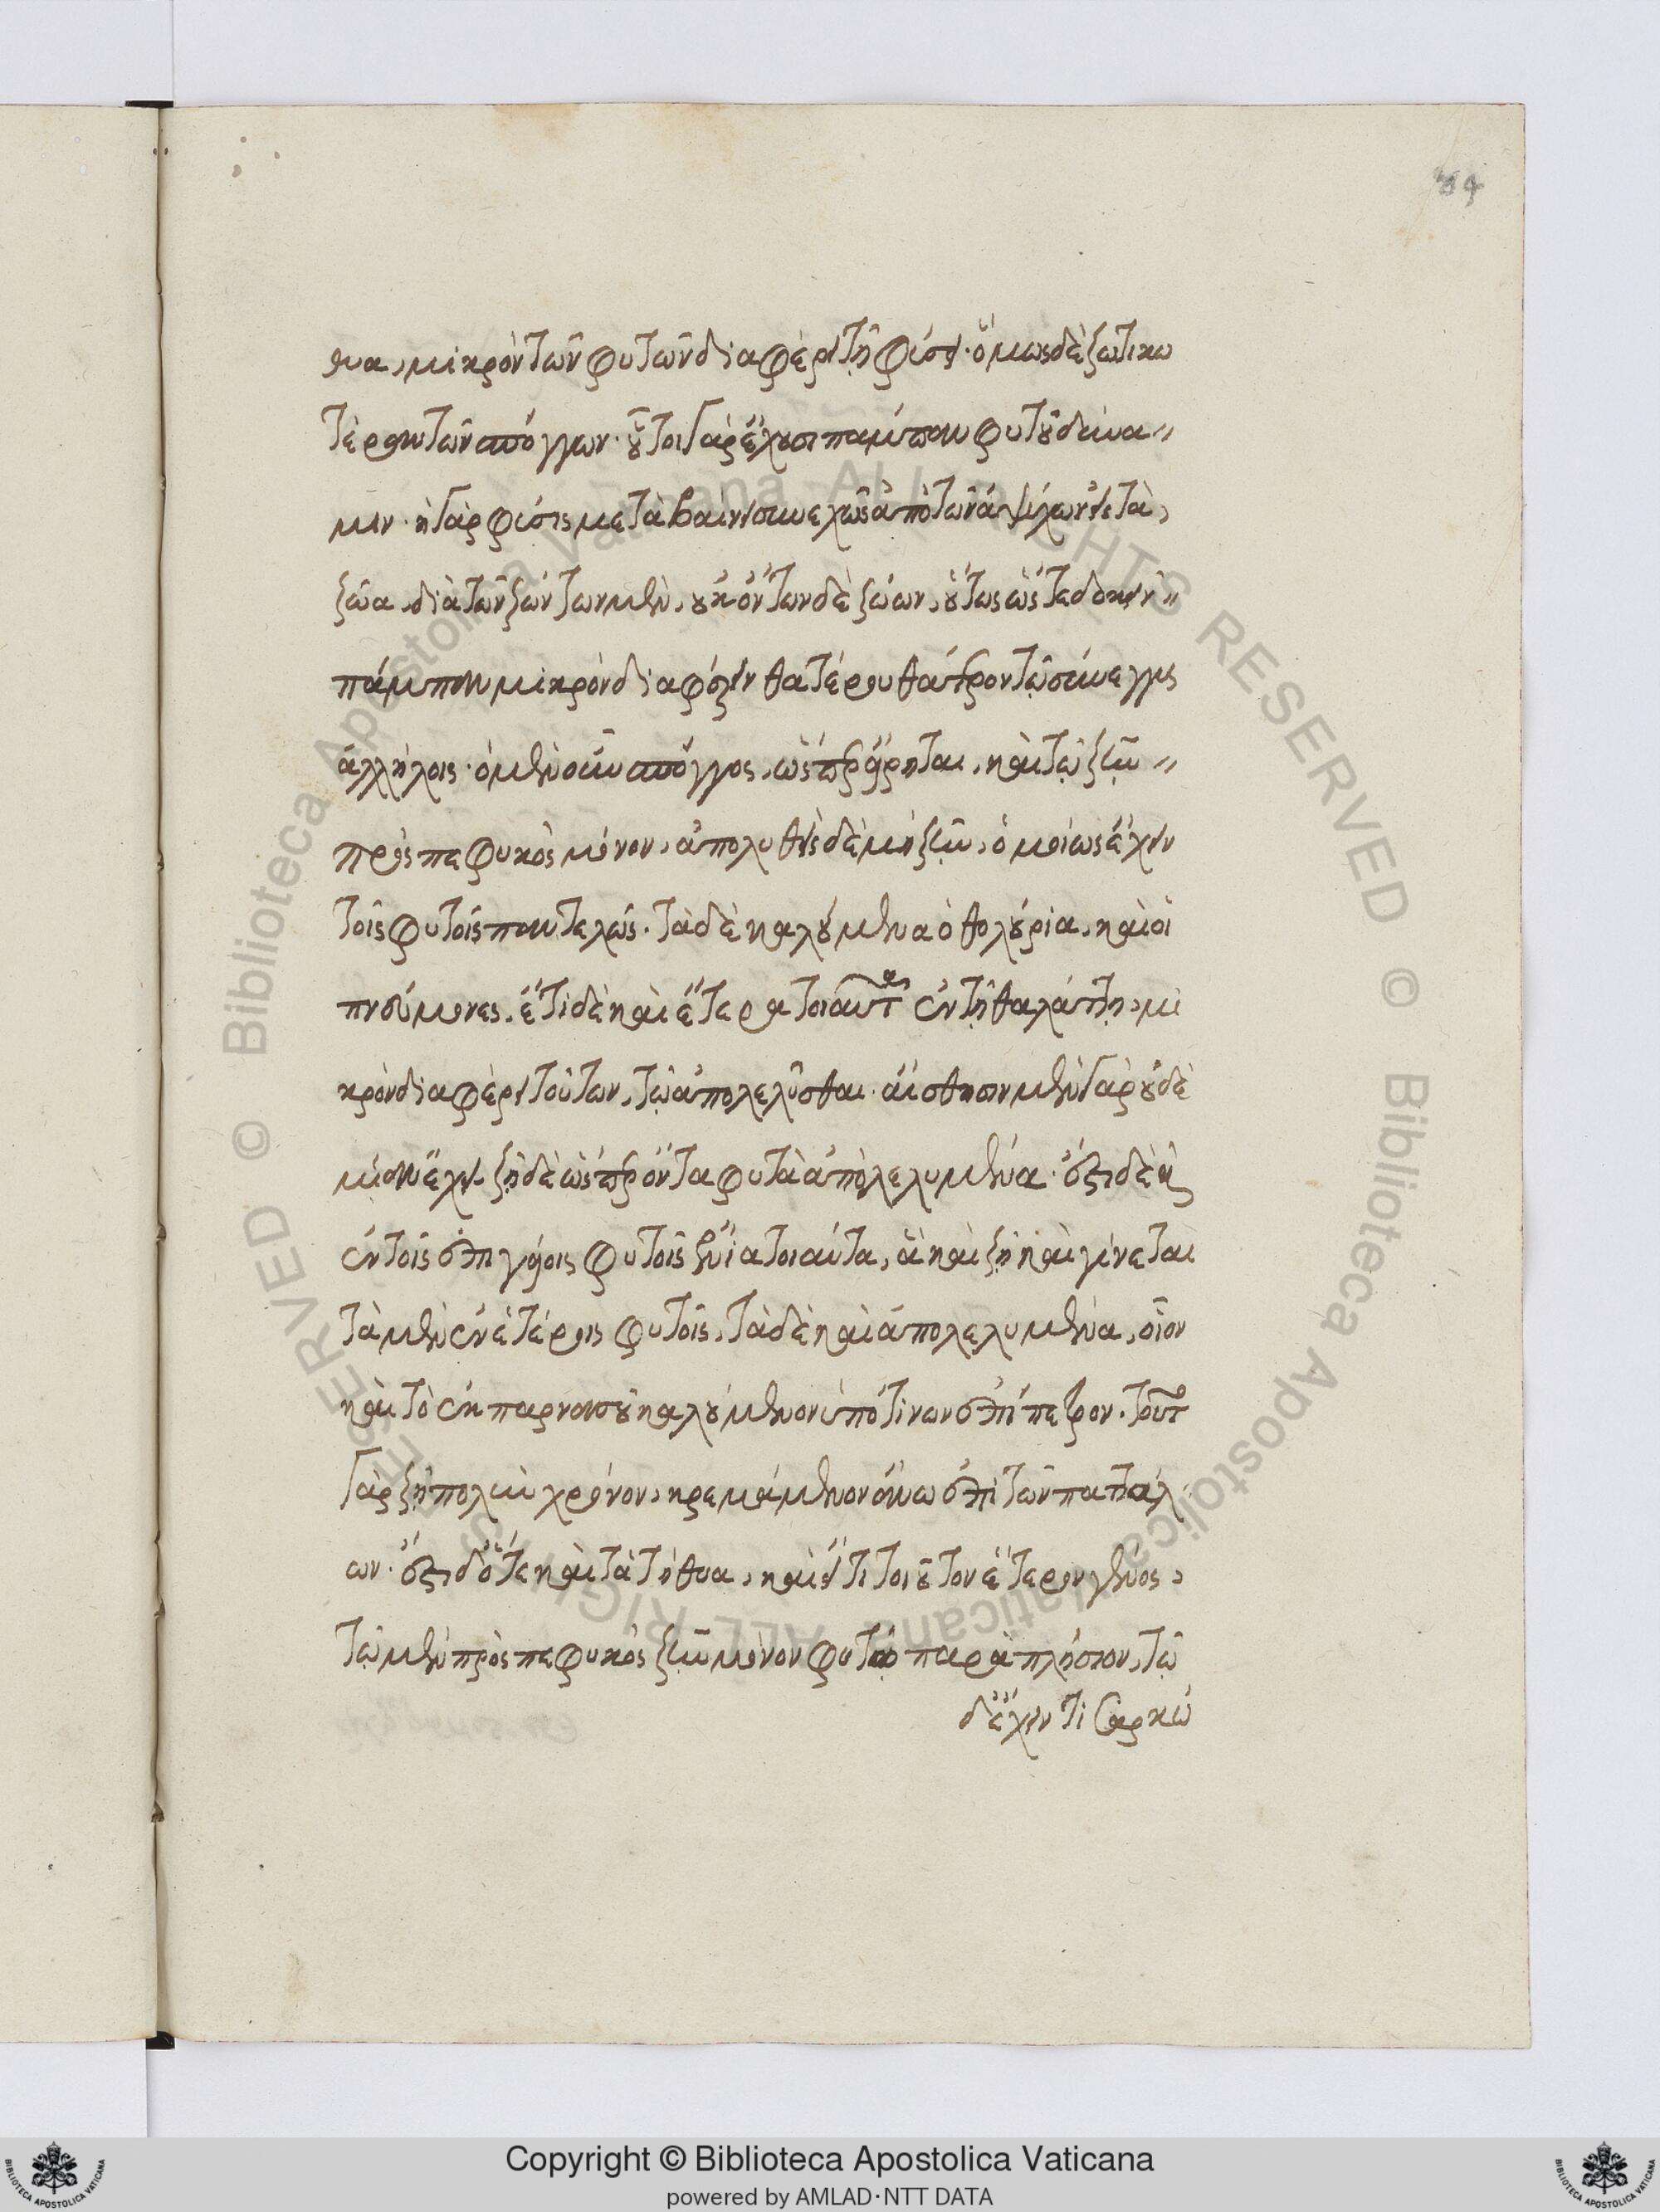 θυα, μικρὸν τῶν φυτῶν διαφέρει τῇ φύσει· ὅμως δὲ ζωτικώ
τερον τῶν σπόγγων· οὗτοι γὰρ ἔχουσι πάμπαν φυτοῦ δύνα
μιν· ἡ γὰρ φύσις μεταβαίνει συνεχῶς ἀπὸ τῶν ἀψύχων εἰς τὰ
ζῶα, διὰ τῶν ζώντων μὲν, οὐκ ὄντων δὲ ζώων, οὕτως ὥστε δοκεῖν
πάμπαν μικρὸν διαφέρειν θατέρου θάτερον τῷ σύνεγγυς
ἀλλήλοις· ὁ μὲν οὖν σπόγγος, ὥσπερ εἴρηται, καὶ τῷ ζῆν
προσπεφυκὸς μόνον, ἀπολυθεὶς δὲ μὴ ζῆν, ὁμοίως ἔχειν
τοῖς φυτοῖς παντελῶς· τὰ δὲ καλούμενα ὁθολούρια, καὶ οἱ
πνεύμονες, ἔτι δὲ καὶ ἕτερα τοιαῦτα ἐν τῇ θαλάττῃ, μι
κρὸν διαφέρει τούτων, τῷ ἀπολελῦσθαι· αἴσθησιν μὲν γὰρ οὐδε
μίαν ἔχει, ζῇ δὲ ὥσπερ ὄντα φυτὰ ἀπολελυμένα· ἔστι δὲ καὶ
ἐν τοῖς ἐπιγείοις φυτοῖς ἔνια τοιαῦτα, ἃ καὶ ζῇ καὶ γίνεται
τὰ μὲν ἐν ἑτέροις φυτοῖς, τὰ δὲ καὶ ἀπολελυμένα, οἷον
καὶ τὸ ἐκ παρνασοῦ καλούμενον ὑπό τινων ἐπίπετρον· τοῦτο
γὰρ ζῇ πολὺν χρόνον, κρεμάμενον ἄνω ἐπὶ τῶν παττάλ
ων· ἔστι δ' ὅτε καὶ τὰ τήθυα, καὶ εἴ τι τοιοῦτον ἕτερον γένος,
τῷ μὲν προσπεφυκὸς ζῆν μόνον φυτῷ παραπλήσιον, τῷ
δ' ἔχειν τι σαρκῶ
Copyright © Biblioteca Apostolica Vaticana
powered by AMLAD·NTT DATA